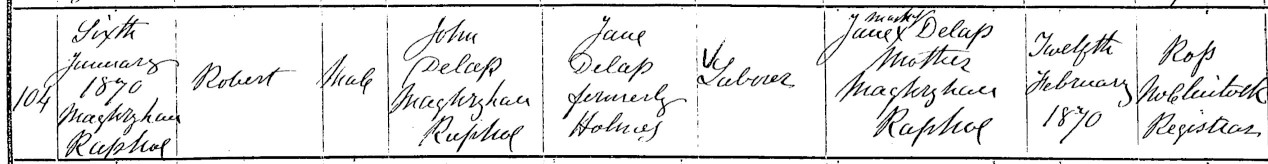 104
Sixth
January
1870
Maghryhan
Raphoe
Robert
Male
John
Delap
Maghryhan
Raphoe
Jane
Delap
formerly
Holmes
Laborer
mark
Jane X Delap
Mother
Maghryhan
Raphoe
Twelfth
February
1870
Ross
McClintock
Registrar